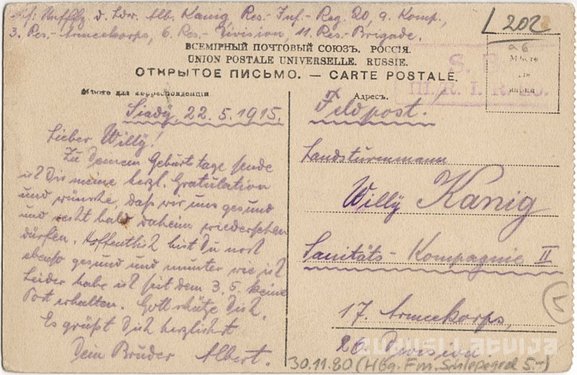 Abs: Untffz. d. Ldw. Alb. Kanig, Res.-Inf.-Reg. 20, 9. Komp.
3. Res.-Armeekorps, 6. Res.-Division, 11. Res.-Brigade.
L 202
ВСЕМІРНЫЙ ПОЧТОВЫЙ СОЮЗЪ. РОССІЯ.
UNION POSTALE UNIVERSELLE. RUSSIE.
ОТКРЫТОЕ ПИСЬМО. — CARTE POSTALE.
Мѣсто
для
марки
Мѣсто для корреспонденціи
Адресъ.
Siady, 22.5.1915.
Lieber Willy.
Zu Deinem Geburtstage sende
ich Dir meine herzl. Gratulation
und wünsche, daß wir uns gesund
und recht bald daheim wiedersehen
dürfen. Hoffentlich bist Du noch
ebenso gesund und munter wie ich
Leider habe ich seit dem 3.5. keine
Post erhalten. Gott schütze Dich.
Es grüßt Dich herzlichst
Dein Bruder Albert.
Feldpost.
Landsturmmann
Willy Kanig
Sanitäts-Kompagnie II
17. Armeekorps,
26 Division
30.11.80 (Hbg. Fm. 5.-)